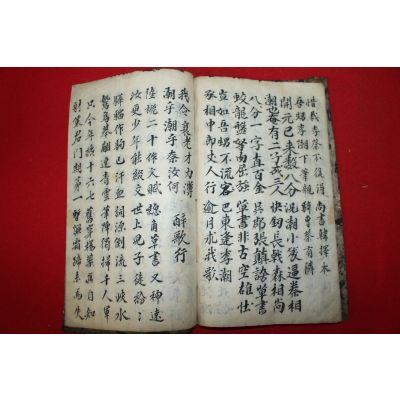 惜哉李蔡不復得 尚書韓擇木
吾甥李潮下筆親 騎曹蔡有隣
開元已來數八分 況潮小篆逼秦相
潮也奄有二子成三人 快釖長戟森相向
八分一字直百金 吳郡張顚誇草書
蛟龍盤拏肉屈强 草書非古空雄壯
豈如吾甥不流宕 巴東逢李潮
丞相中郎丈人行 逾月求我歌
我今衰老才力薄
潮乎潮乎奈汝何 醉歌行
陸機二十作文賦 總角草書又神速
汝更少年能綴文 世上兒子徒紛〻
驊騮作駒已汗血 詞源倒流三峽水
鷙鳥舉翮連青雲 筆陣獨掃千人軍
只今年纔十六七 舊穿楊葉真自知
射策君門期第一 暫蹶霜蹄未爲失